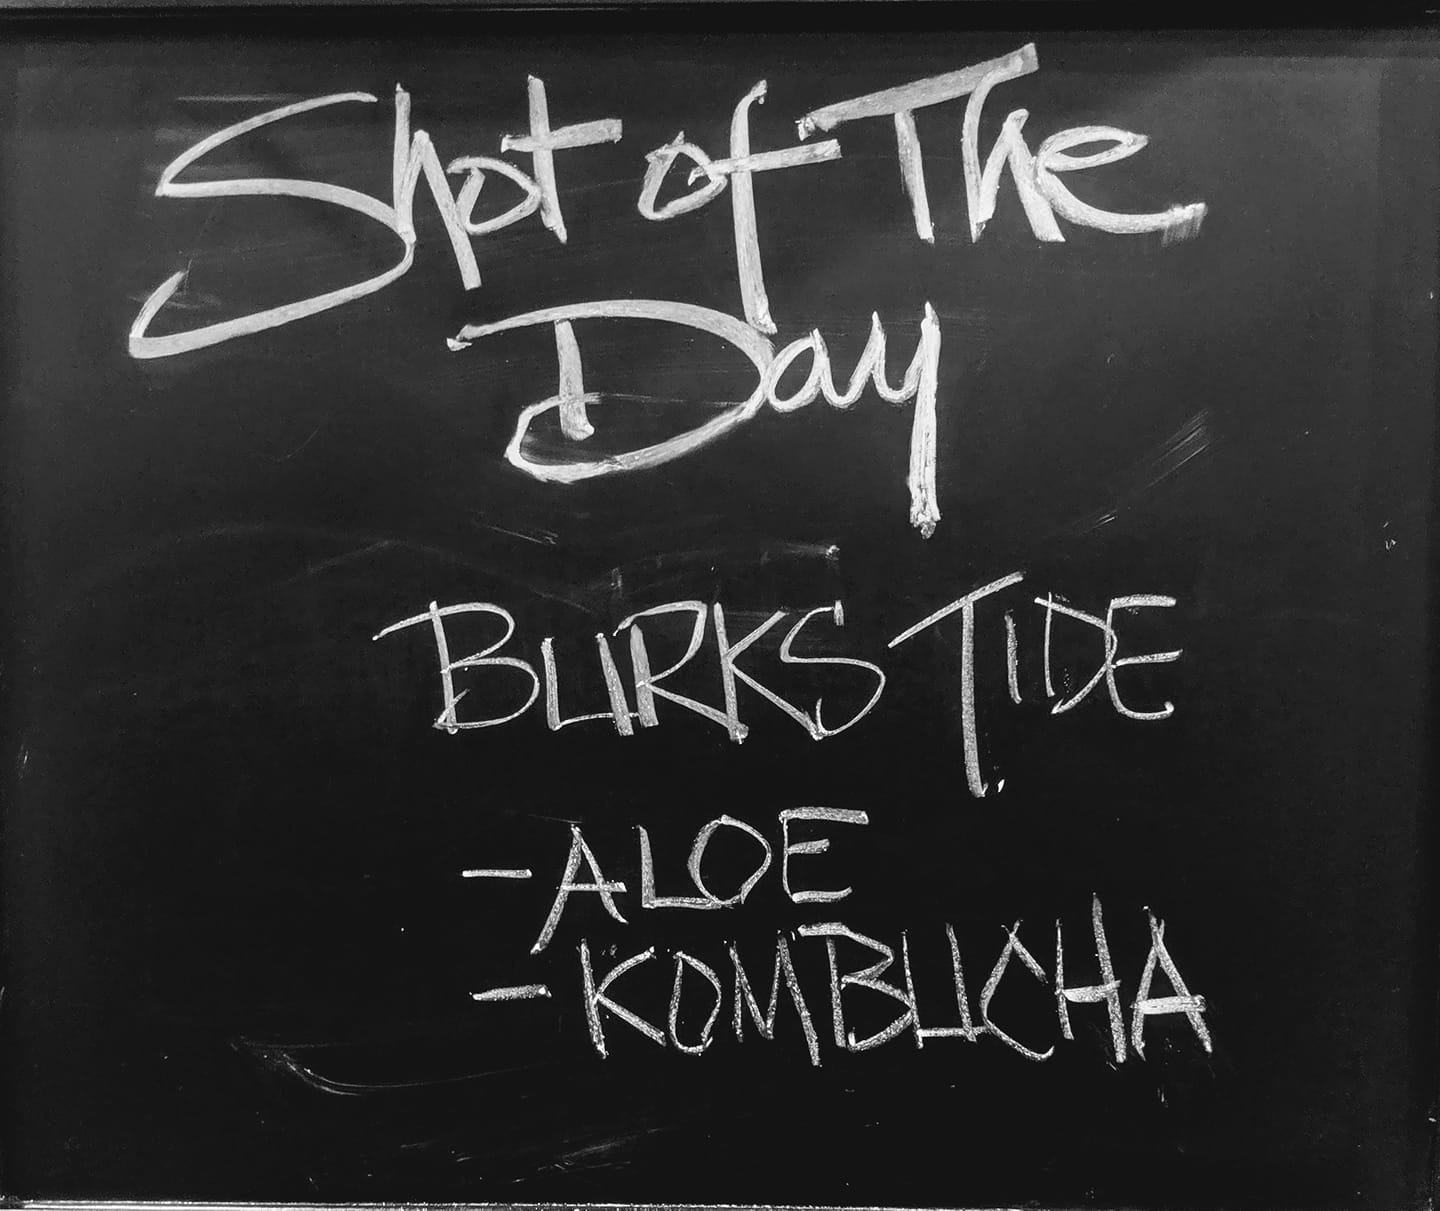 Shot of The
Day
BURKS TIDE
- ALOE
- KOMBUCHA